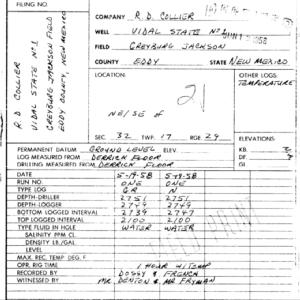 FILING NO.
COMPANY R. D. COLLIER
WELL VIDAL STATE No 1
FIELD GREYBURG JACKSON
COUNTY EDDY STATE NEW MEXICO
R D COLLIER
VIDAL STATE No 1
GREYBURG JACKSON FIELD
EDDY COUNTY, NEW MEXICO
LOCATION:
OTHER LOGS:
TEMPERATURE
21
NE/SE
SEC. 32 TWP. 17 RGE. 29
ELEVATIONS
PERMANENT DATUM GROUND LEVEL
KB
LOG MEASURED FROM DERRICK FLOOR
DF
DRILLING MEASURED FROM DERRICK FLOOR
GL
DATE 5-19-58 5-19-58
RUN NO. ONE ONE
TYPE LOG G.R. N
DEPTH-DRILLER 2751 2751
DEPTH-LOGGER 2749 2749
BOTTOM LOGGED INTERVAL 2739 2747
TOP LOGGED INTERVAL 2100 2100
TYPE FLUID IN HOLE WATER WATER
SALINITY PPM CL.
DENSITY LB./GAL.
LEVEL
MAX. REC. TEMP. DEG. F.
OPR. RIG TIME 1 HOUR W/TEMP
RECORDED BY DOSSY & FRENCH
WITNESSED BY MR DENTON & MR FRYMAN